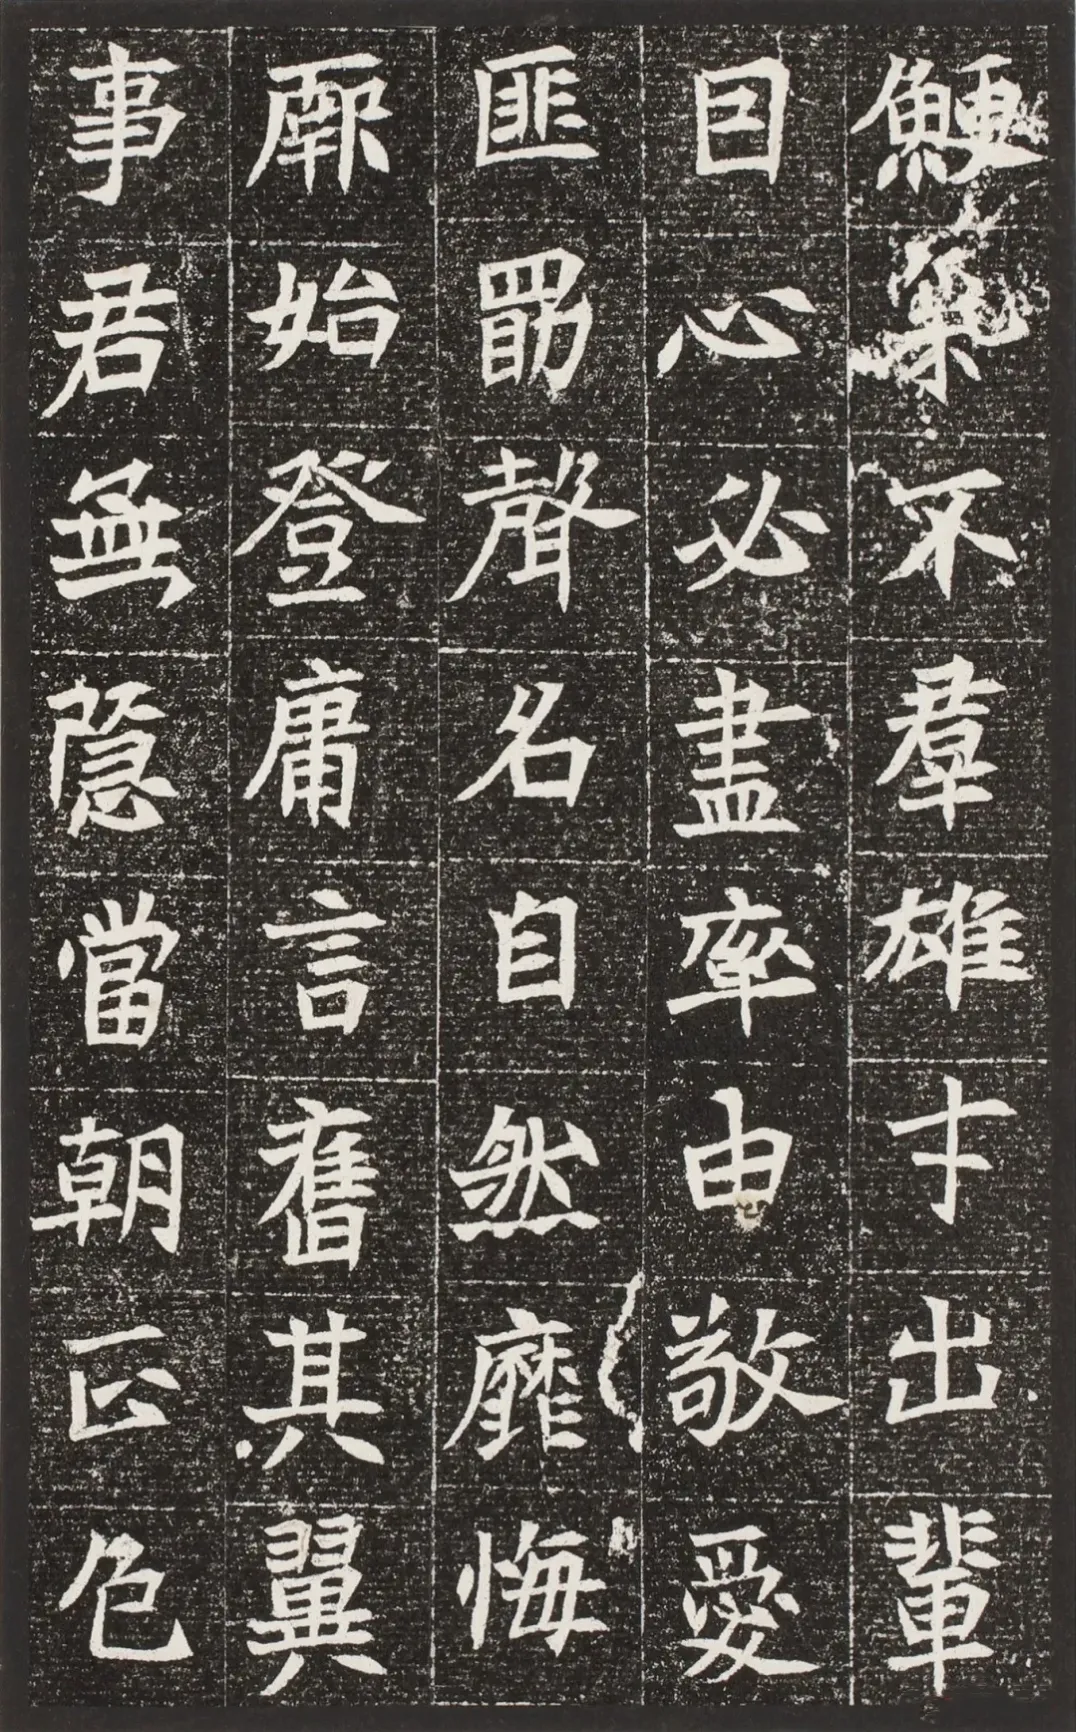 鯁不羣雄才出輩
囙心必盡率由敬愛
匪勗聲名自然靡悔
始登庸言舊其翼
事君無隱當朝正色